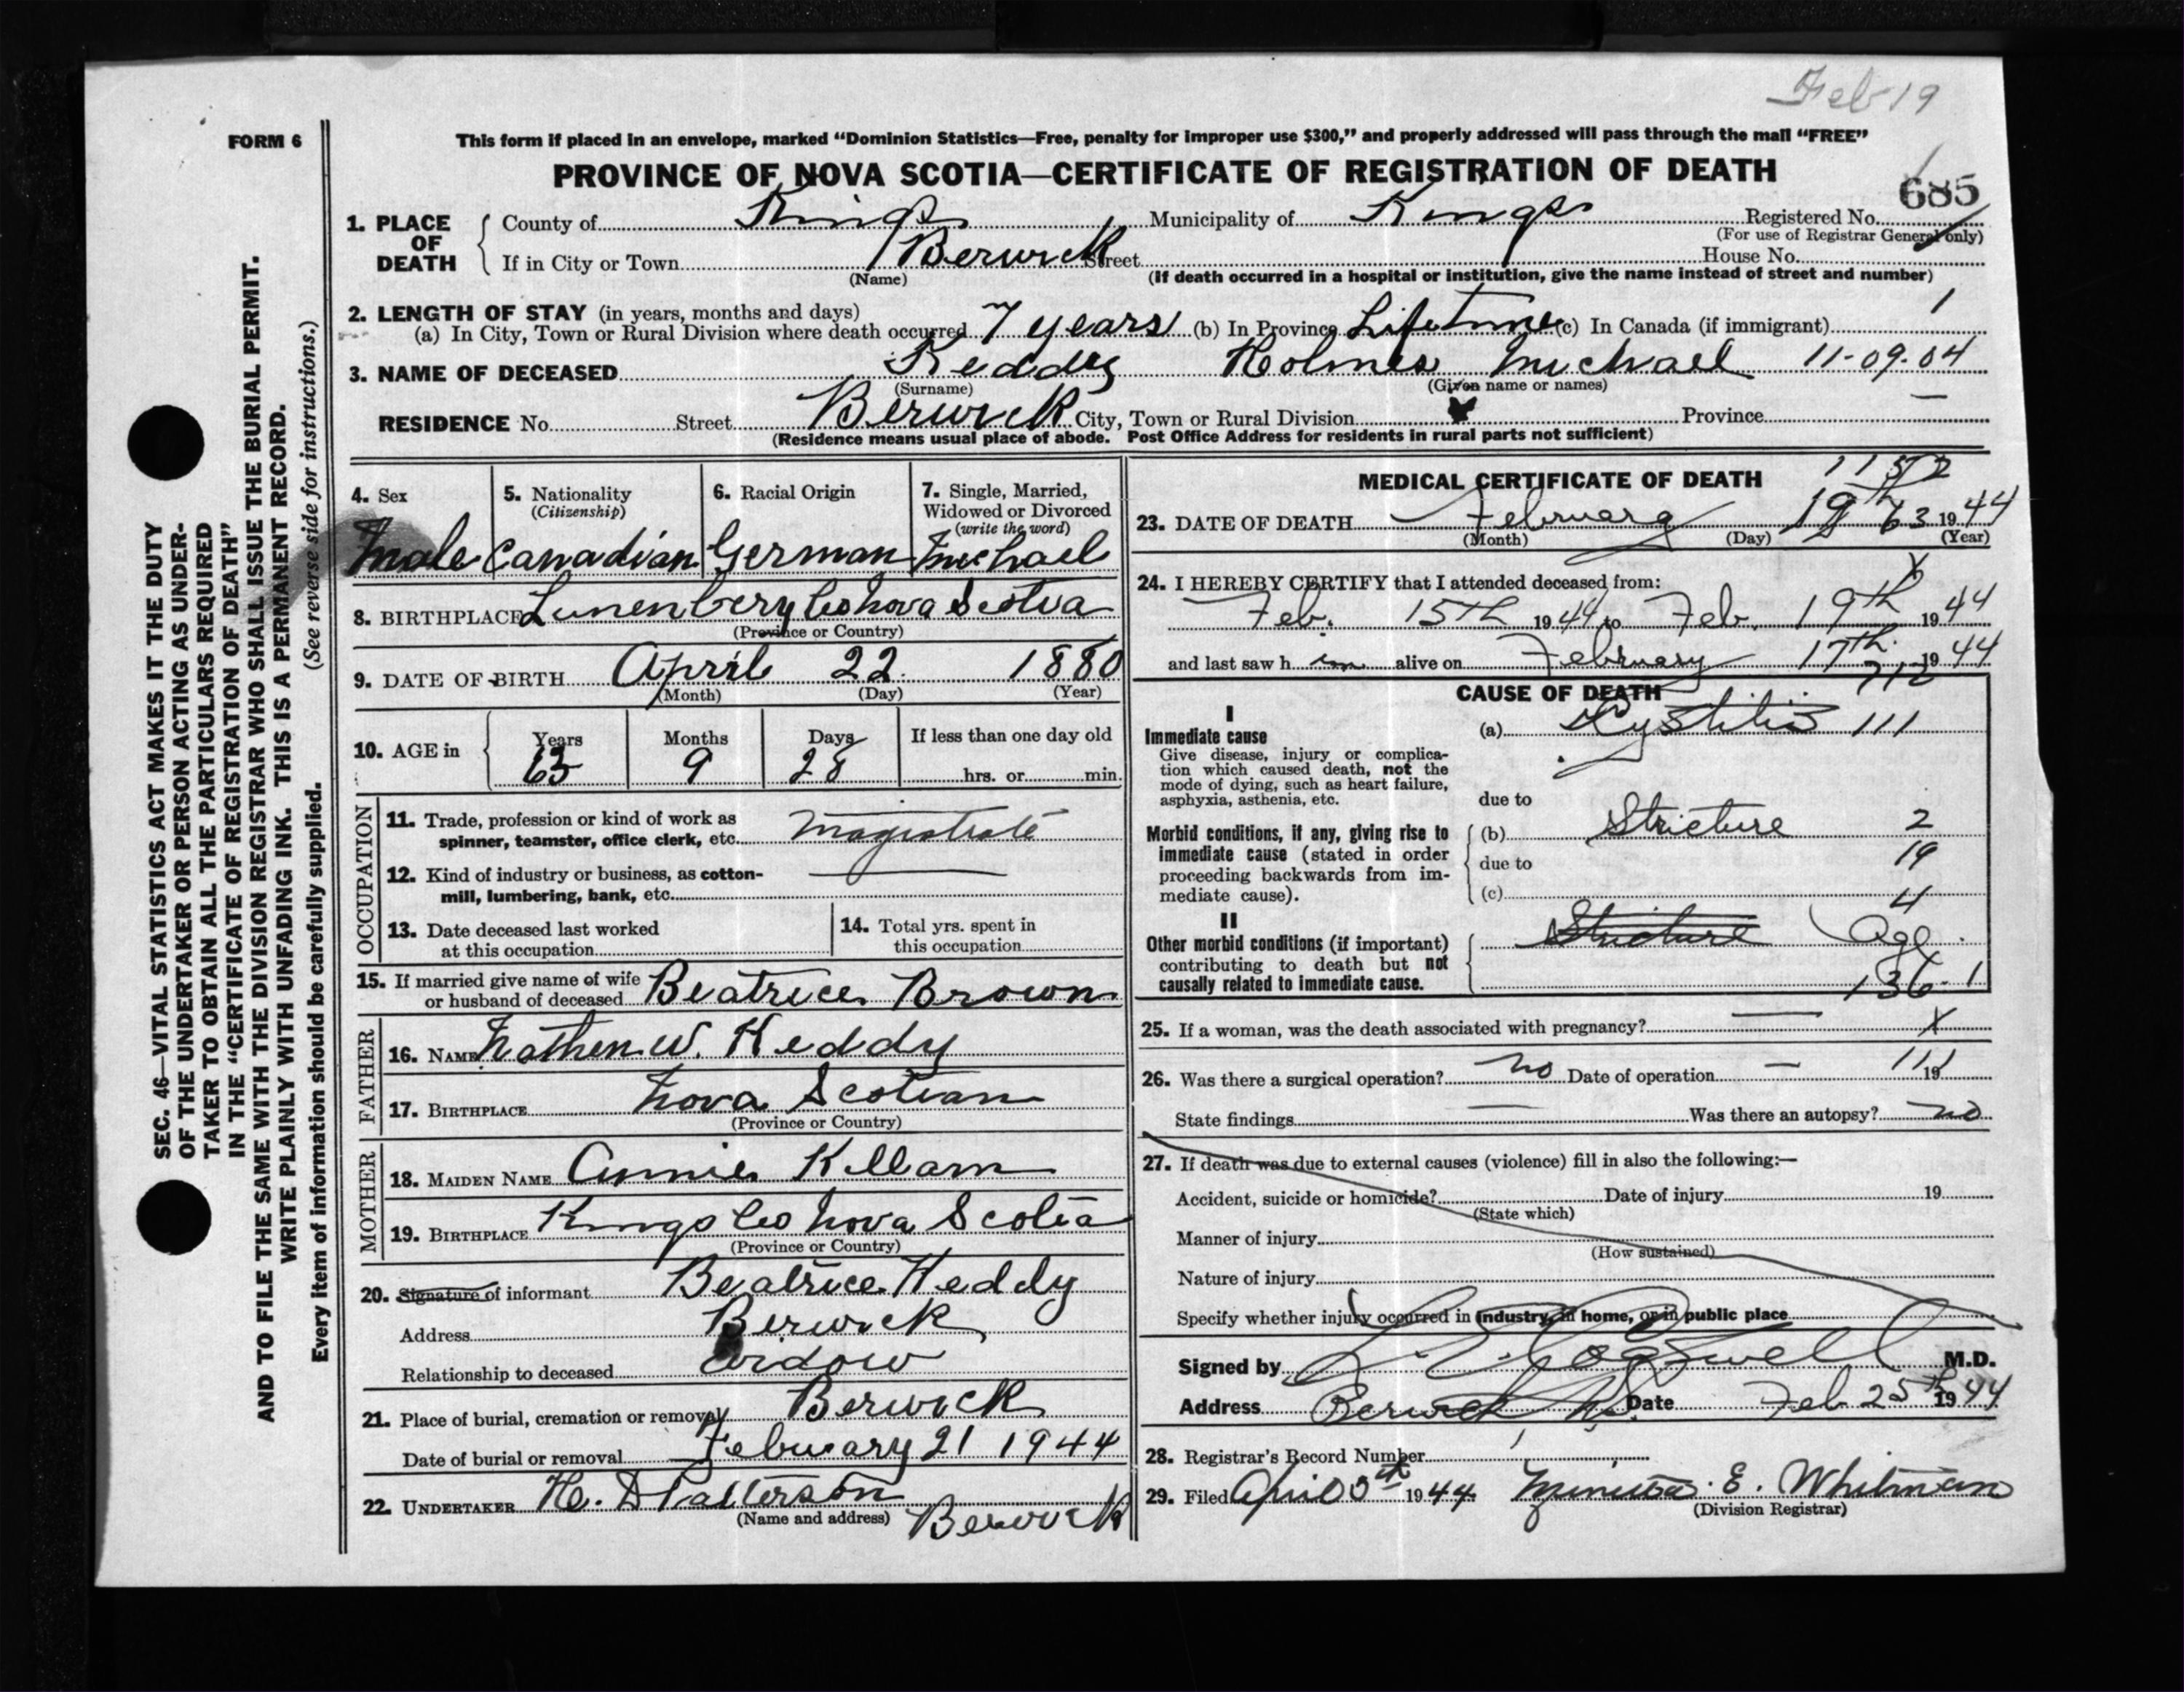 Feb 19
FORM 6
This form if placed in an envelope, marked “Dominion Statistics—Free, penalty for improper use $300,” and properly addressed will pass through the mail “FREE”
PROVINCE OF NOVA SCOTIA—CERTIFICATE OF REGISTRATION OF DEATH
685
1. PLACE OF DEATH County of Kings Municipality of Kings Registered No.
(For use of Registrar General only)
If in City or Town Berwick Street House No.
(Name) (If death occurred in a hospital or institution, give the name instead of street and number)
2. LENGTH OF STAY (in years, months and days)
(a) In City, Town or Rural Division where death occurred 7 years (b) In Province Lifetime (c) In Canada (if immigrant) 1
3. NAME OF DECEASED Keddy Holmes Michael 11-09-04
(Surname) (Given name or names)
RESIDENCE No. Street Berwick City, Town or Rural Division Province —
(Residence means usual place of abode. Post Office Address for residents in rural parts not sufficient)
4. Sex 5. Nationality (Citizenship) 6. Racial Origin 7. Single, Married, Widowed or Divorced (write the word)
Male Canadian German Michael
8. BIRTHPLACE Lunenberg Co Nova Scotia
(Province or Country)
9. DATE OF BIRTH April 22 1880
(Month) (Day) (Year)
10. AGE in Years Months Days If less than one day old
63 9 28 hrs. or min.
OCCUPATION
11. Trade, profession or kind of work as
spinner, teamster, office clerk, etc. Magistrate
12. Kind of industry or business, as cotton-
mill, lumbering, bank, etc. —
13. Date deceased last worked
at this occupation
14. Total yrs. spent in
this occupation
15. If married give name of wife
or husband of deceased Beatrice Brown
FATHER
16. NAME Nathen W. Keddy
17. BIRTHPLACE Nova Scotian
(Province or Country)
MOTHER
18. MAIDEN NAME Annie Killam
19. BIRTHPLACE Kings Co Nova Scotia
(Province or Country)
20. Signature of informant Beatrice Keddy
Address Berwick
Relationship to deceased widow
21. Place of burial, cremation or removal Berwick
Date of burial or removal Febuary 21 1944
22. UNDERTAKER H. D Patterson
(Name and address) Berwick
MEDICAL CERTIFICATE OF DEATH
23. DATE OF DEATH February 19th 63 1944
(Month) (Day) (Year)
24. I HEREBY CERTIFY that I attended deceased from:
Feb. 15th 1944 to Feb. 19th 1944
and last saw h im alive on February 17th 1944
CAUSE OF DEATH
I
Immediate cause (a) Cystitis 111
Give disease, injury or complica-
tion which caused death, not the
mode of dying, such as heart failure,
asphyxia, asthenia, etc.
due to
Morbid conditions, if any, giving rise to (b) Stricture 2
immediate cause (stated in order due to 19
proceeding backwards from im-
mediate cause). (c) 4
II
Other morbid conditions (if important) Stricture Age
contributing to death but not
causally related to immediate cause. 136.1
25. If a woman, was the death associated with pregnancy? — X
26. Was there a surgical operation? no Date of operation — 19
State findings — Was there an autopsy? no
27. If death was due to external causes (violence) fill in also the following:—
Accident, suicide or homicide? Date of injury 19
(State which)
Manner of injury
(How sustained)
Nature of injury
Specify whether injury occurred in industry, in home, or in public place
Signed by Cogswell M.D.
Address Berwick Date Feb 25th 1944
28. Registrar's Record Number
29. Filed April 5th 1944 E. Whitman
(Division Registrar)
SEC. 46—VITAL STATISTICS ACT MAKES IT THE DUTY
OF THE UNDERTAKER OR PERSON ACTING AS UNDER-
TAKER TO OBTAIN ALL THE PARTICULARS REQUIRED
IN THE “CERTIFICATE OF REGISTRATION OF DEATH”
AND TO FILE THE SAME WITH THE DIVISION REGISTRAR WHO SHALL ISSUE THE BURIAL PERMIT.
WRITE PLAINLY WITH UNFADING INK. THIS IS A PERMANENT RECORD.
Every item of information should be carefully supplied. (See reverse side for instructions.)